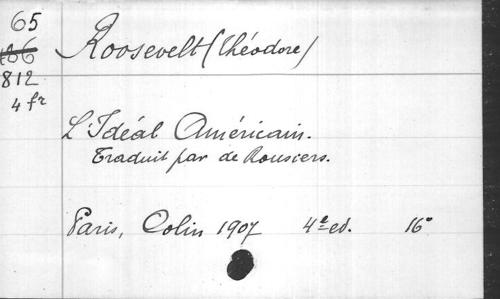 65
106
812
4 fr
Roosevelt (Théodore)
L'Idéal Américain.
Traduit par de Rousiers.
Paris, Colin 1907 4e ed. 16°